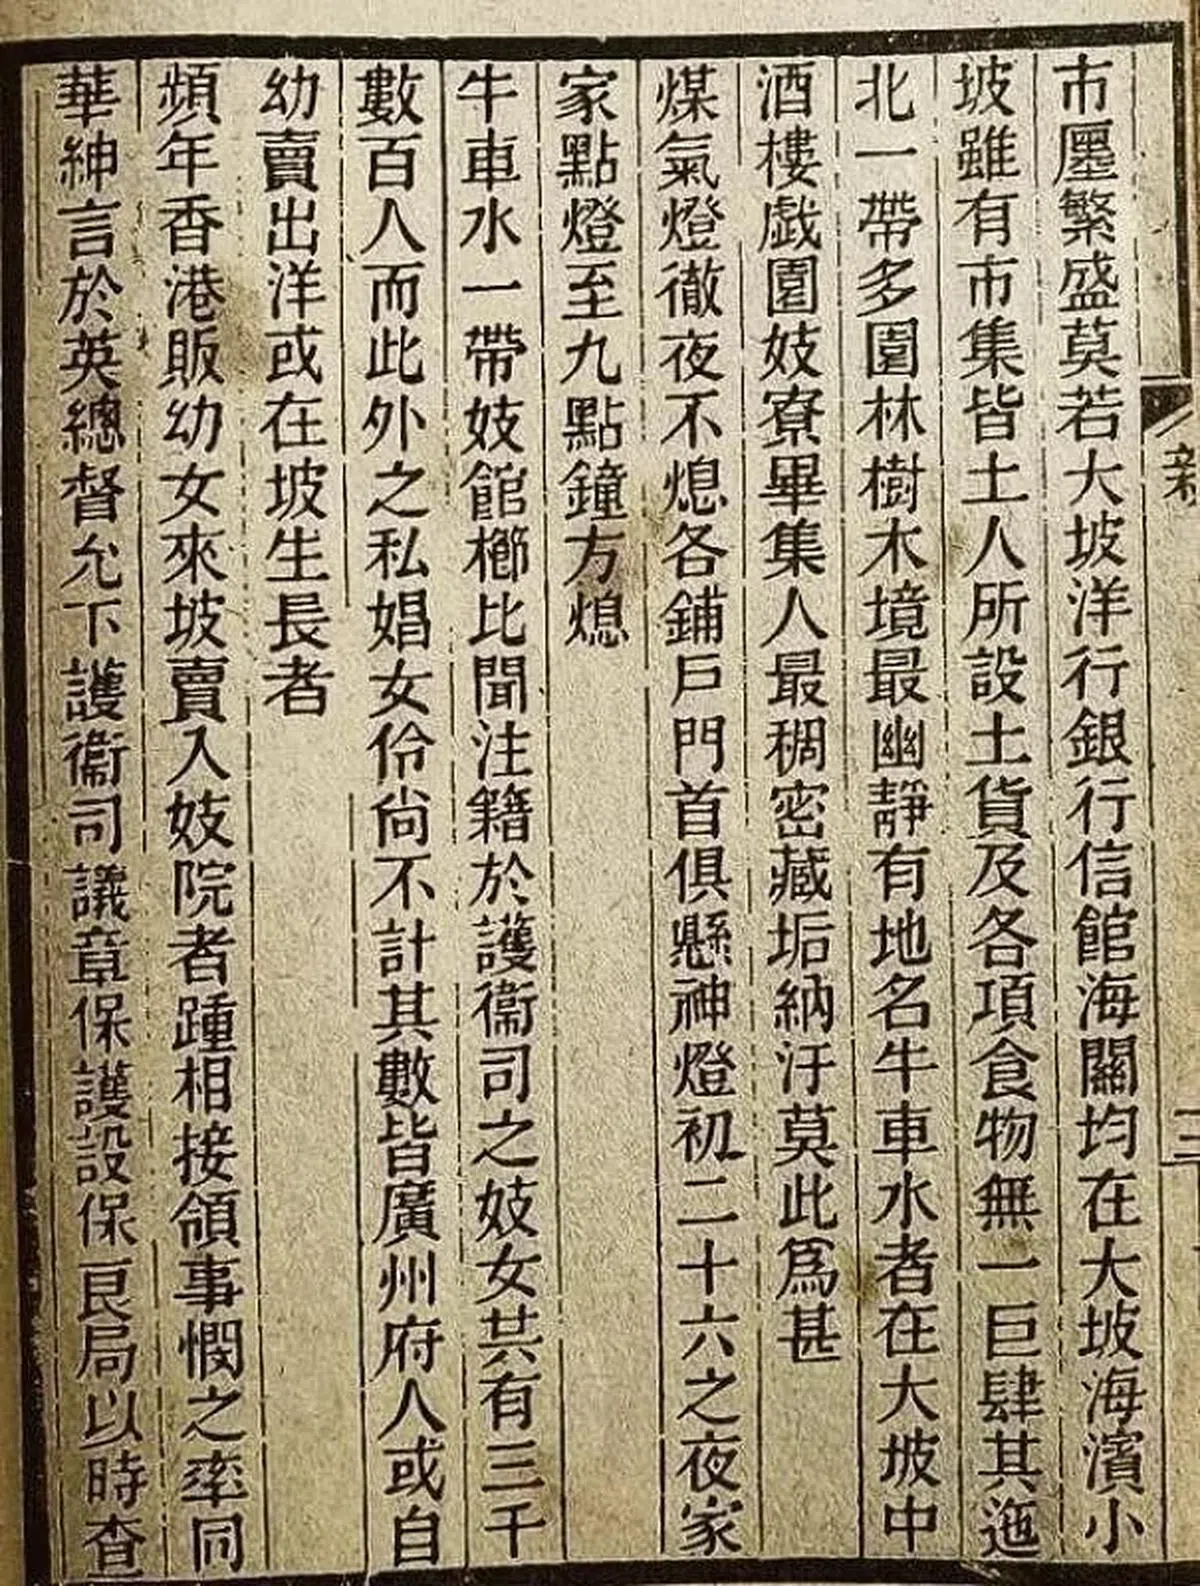 市廛繁盛莫若大坡洋行銀行信館海關均在大坡海濱小
坡雖有市集皆土人所設土貨及各項食物無一巨肆其迤
北一帶多園林樹木境最幽靜有地名牛車水者在大坡中
酒樓戲園妓寮畢集人最稠密藏垢納汙莫此爲甚
煤氣燈徹夜不熄各鋪戶門首俱懸神燈初二十六之夜家
家點燈至九點鐘方熄
牛車水一帶妓館櫛比聞注籍於護衛司之妓女共有三千
數百人而此外之私娼女伶尚不計其數皆廣州府人或自
幼賣出洋或在坡生長者
頻年香港販幼女來坡賣入妓院者踵相接領事憫之率同
華紳言於英總督允下護衛司議章保護設保良局以時查